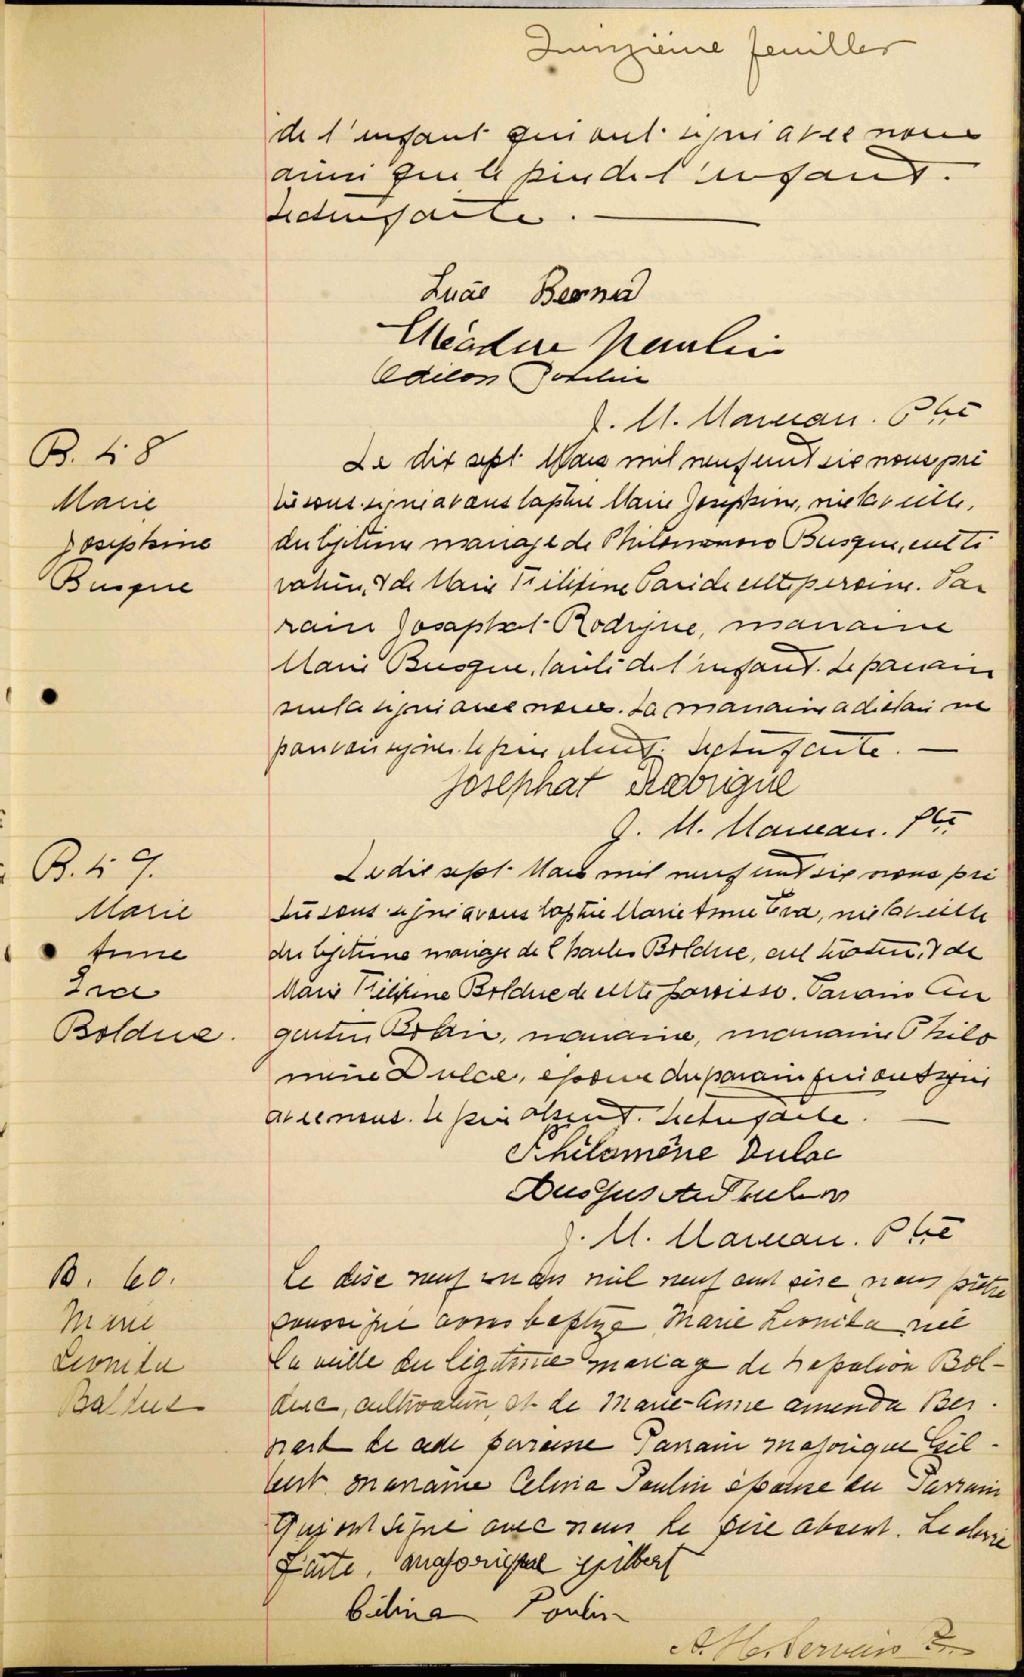 Quinzième feuillet
de l'enfant qui ont signé avec nous
ainsi que le père de l'enfant.
Lecture faite.
Lucie Bernard
Méadée Poulin
Odilon Poulin
J. M. Marceau. Ptre
B. 58
Marie
Josephine
Busque
Le dix sept Mars mil neuf cent six nous prê
tre soussigné avons baptisé Marie Josephine, née la veille,
du légitime mariage de Philemon Busque, culti
vateur, & de Marie Paré de cette paroisse. Par
rain Josaphat Rodrigue, marraine
Marie Busque, tante de l'enfant. Le parrain
seul a signé avec nous. La marraine a déclaré ne
pouvoir signer. le père absent. Lecture faite.
Josephat Rodrigue
J. M. Marceau. Ptre
B. 59.
Marie
Anne
Eva
Bolduc.
Le dix sept Mars mil neuf cent six nous prê
tre soussigné avons baptisé Marie Anne Eva, née la veille
du légitime mariage de Charles Bolduc, cultivateur, & de
Marie Bolduc de cette paroisse. Parrain Au
gustin, marraine, marraine Philo
mène Dulac, épouse du parrain qui ont signé
avec nous. le père absent. Lecture faite.
Philomène Dulac
J. M. Marceau. Ptre
B. 60.
Marie
Leonida
Bolduc
Le dise neuf mars mil neuf cent sise nous prêtre
soussigné avons baptizé Marie Leonida née
la veille du légitime mariage de Napoléon Bol-
duc, cultivateur, et de Marie-Anne amenda Ber-
nard de cette paroisse Parrain majorique Gil-
bert marraine Celina Poulin épouse du Parrain
Qui ont signé avec nous le père absent. Lecture
faite. majorique gilbert
Célina Poulin